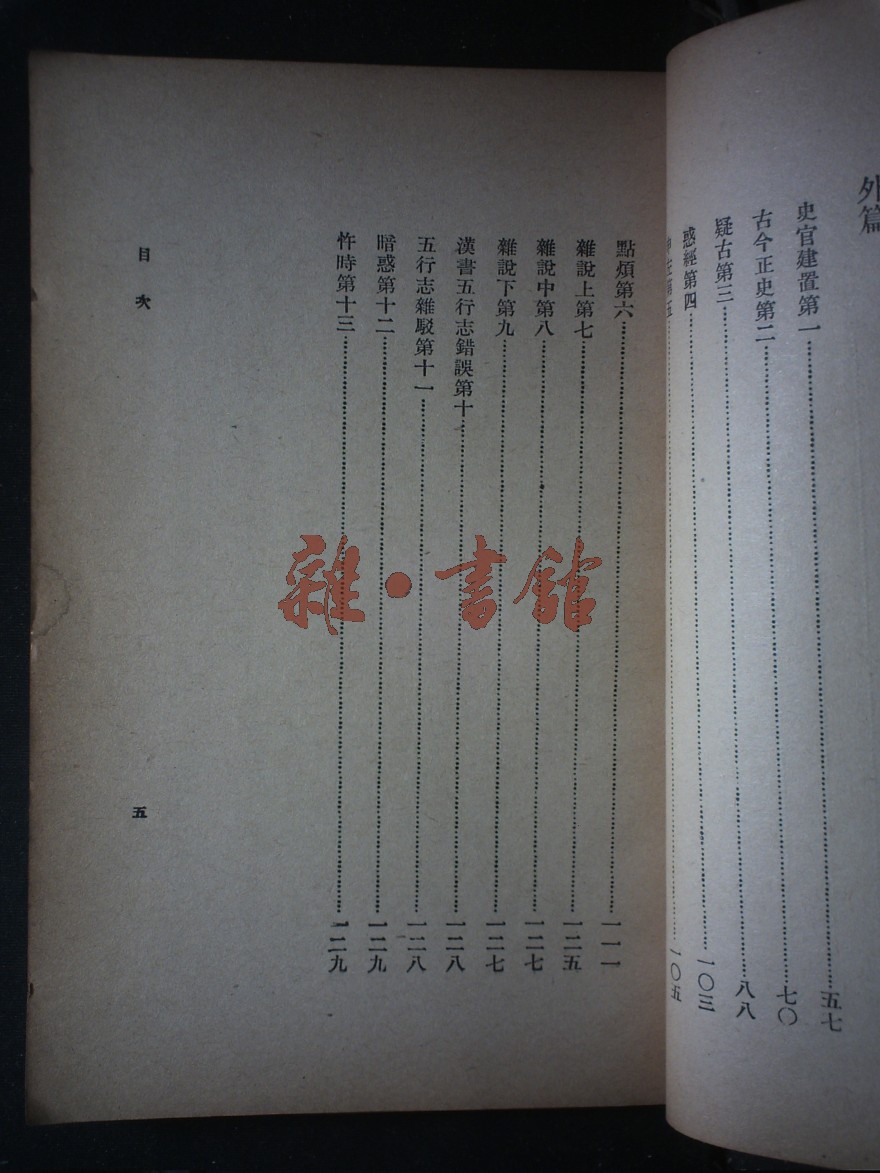 外篇
史官建置第一……五七
古今正史第二……七〇
疑古第三……八八
惑經第四……一〇三
第五……一〇五
點煩第六……一一一
雜說上第七……一二五
雜說中第八……一二七
雜說下第九……一二七
漢書五行志錯誤第十……一二八
五行志雜駁第十一……一二八
暗惑第十二……一二九
忤時第十三……一二九
目次
五
雜·書館